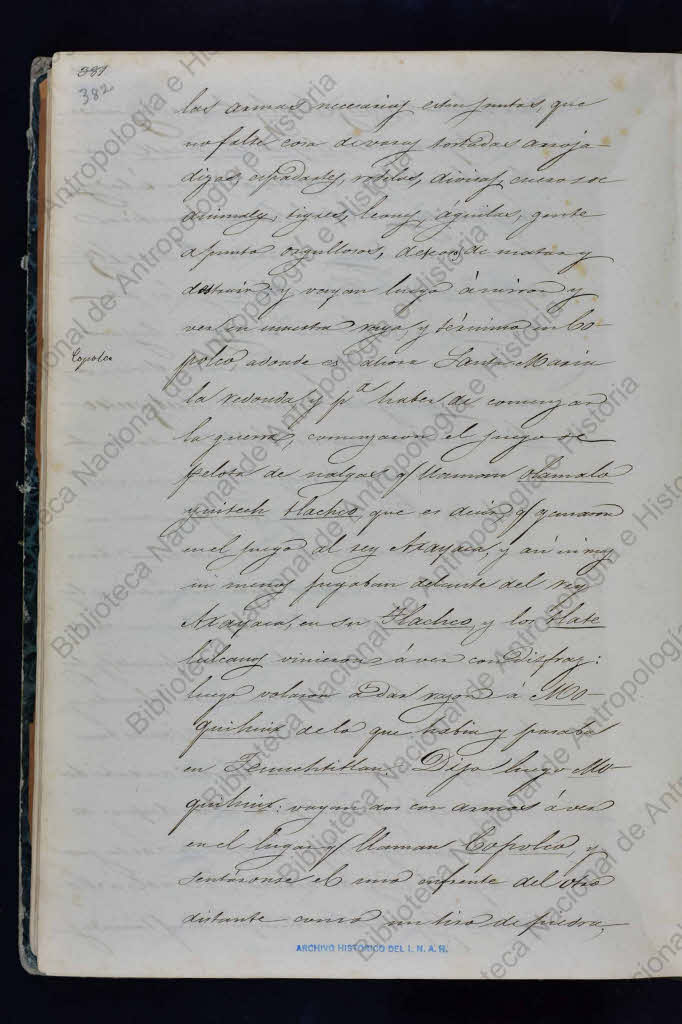 381
382
las armas necesarias esten juntas, que
no falte cosa de varas tostadas arroja-
dizas, espadartes, rodelas, divisas, cueros de
animales, tigres, leones, águilas, gente
a punto orgullosos, deseosos de matar y
destruir: y vayan luego á mirar y
ver en nuestra raya, y término en Co-
Copolco
polco, adonde es ahora Santa Maria
la redonda, y pª haber de comenzar
la guerra, comenzaron el juego de
pelota de nalgas q/ llaman olamalo
tlachco que es decir q/
en el juego al rey Axayaca, y así ni mas
ni menos jugaban delante del rey
Axayaca, en su Tlachco, y los Tlate
lulcanos vinieron á ver con disfraz:
luego volaron a dar razon á Mo-
quihuix de lo que habia y pasaba
en Tenuchtitlan. Dijo luego Mo-
quihuix: vayan dos con armas á ver
en el lugar q/ llaman Copolco, y
sentáronse el uno enfrente del otro
distante como un tiro de piedra,
ARCHIVO HISTORICO DEL I. N. A. H.
Biblioteca Nacional de Antropología e Historia